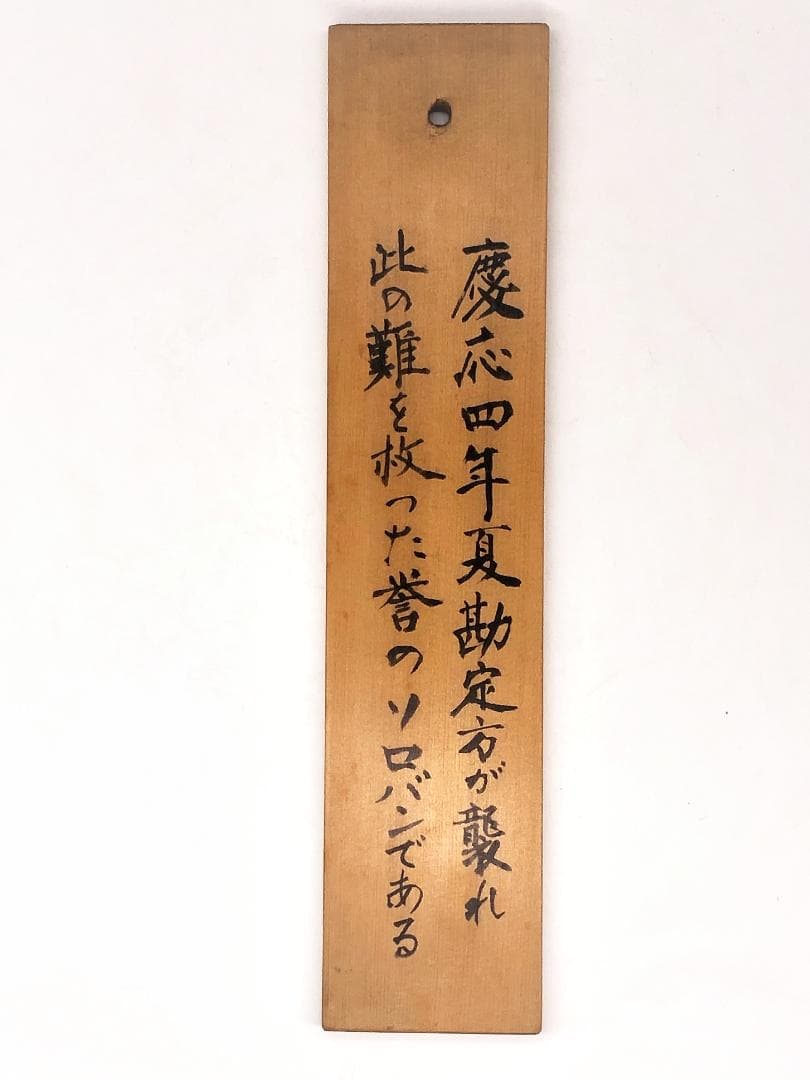 慶応四年夏勘定方が襲れ
此の難を救った誉のソロバンである